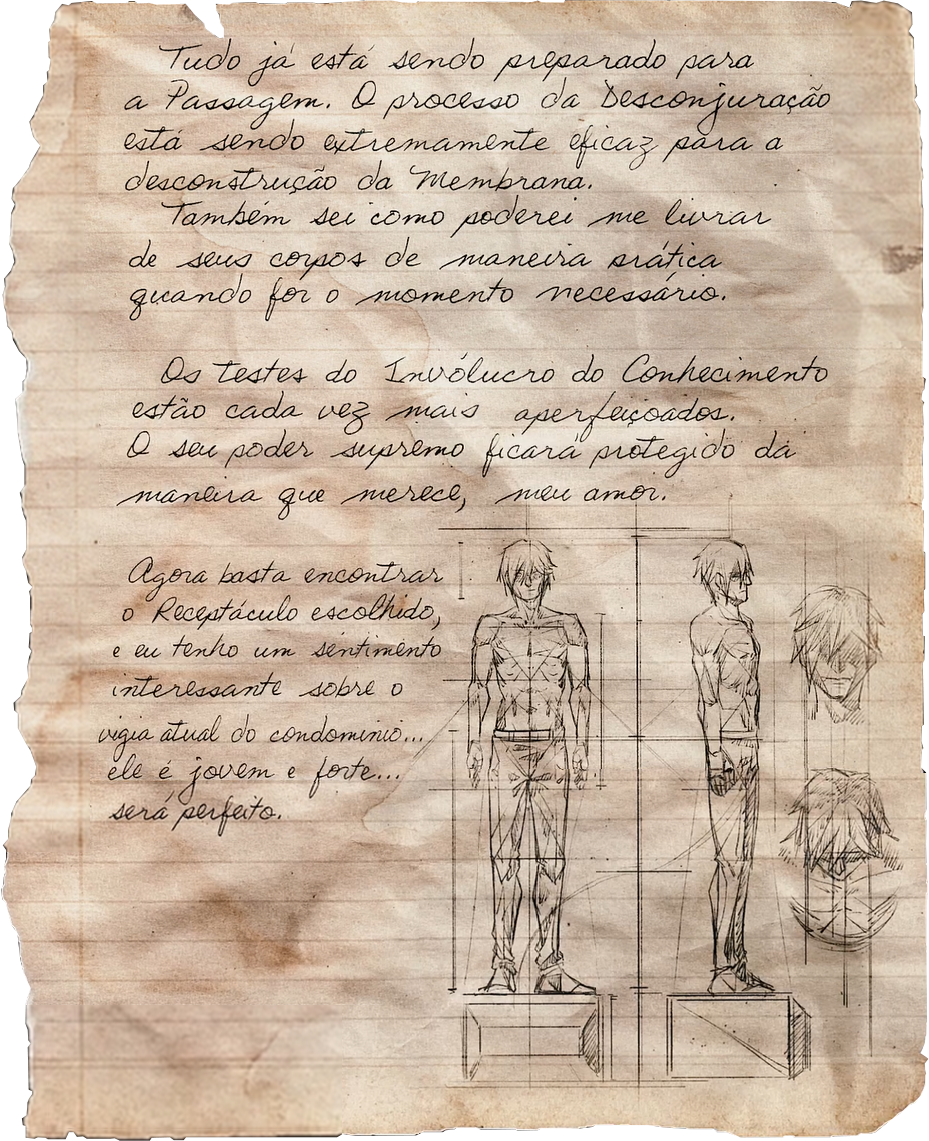 Tudo já está sendo preparado para
a Passagem. O processo da Desconjuração
está sendo extremamente eficaz para a
desconstrução da Membrana.
Também sei como poderei me livrar
de seus corpos de maneira prática
quando for o momento necessário.
Os testes do Invólucro do Conhecimento
estão cada vez mais aperfeiçoados.
O seu poder supremo ficará protegido da
maneira que merece, meu amor.
Agora basta encontrar
o Receptáculo escolhido,
e eu tenho um sentimento
interessante sobre o
vigia atual do condominio...
ele é jovem e forte...
será perfeito.